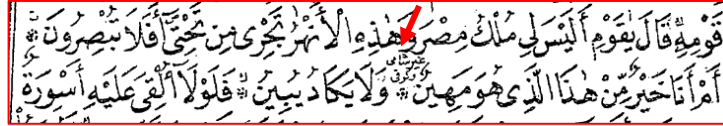 قَوْمِهٖ قَالَ يٰقَوْمِ أَلَيْسَ لِى مُلْكُ مِصْرَ وَهٰذِهِ الْأَنْهٰرُ تَجْرِى مِنْ تَحْتِىٓ أَفَلَا تُبْصِرُونَ
أَمْ أَنَا خَيْرٌ مِّنْ هٰذَا الَّذِى هُوَ مَهِينٌ وَلَا يَكَادُ يُبِينُ فَلَوْلَآ أُلْقِىَ عَلَيْهِ أَسْوِرَةٌ